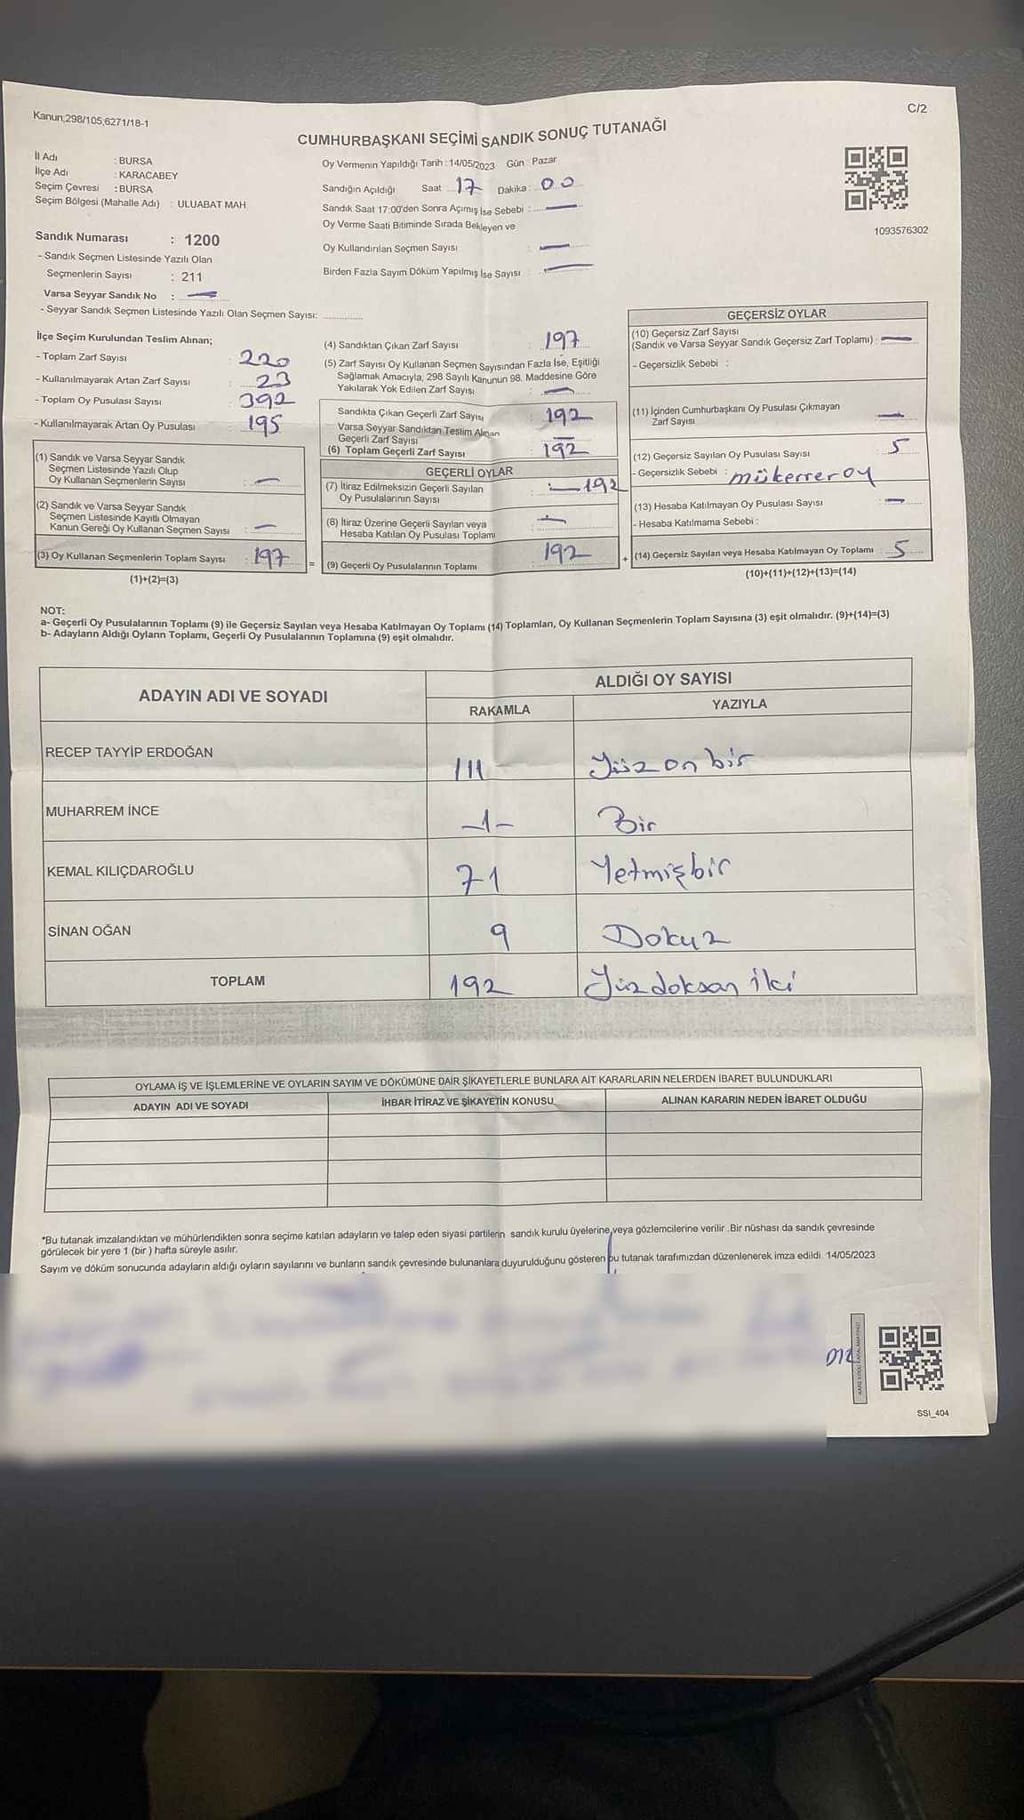 Kanun;298/105,6271/18-1
C/2
CUMHURBAŞKANI SEÇİMİ SANDIK SONUÇ TUTANAĞI
İl Adı : BURSA
İlçe Adı : KARACABEY
Seçim Çevresi : BURSA
Seçim Bölgesi (Mahalle Adı) : ULUABAT MAH.
Sandık Numarası : 1200
- Sandık Seçmen Listesinde Yazılı Olan
Seçmenlerin Sayısı : 211
Varsa Seyyar Sandık No : —
- Seyyar Sandık Seçmen Listesinde Yazılı Olan Seçmen Sayısı: ............
Oy Vermenin Yapıldığı Tarih : 14/05/2023 Gün : Pazar
Sandığın Açıldığı Saat : 17 Dakika : 00
Sandık Saat 17:00'den Sonra Açımış İse Sebebi : —
Oy Verme Saati Bitiminde Sırada Bekleyen ve
Oy Kullandırılan Seçmen Sayısı : —
Birden Fazla Sayım Döküm Yapılmış İse Sayısı : —
1093576302
İlçe Seçim Kurulundan Teslim Alınan;
- Toplam Zarf Sayısı : 220
- Kullanılmayarak Artan Zarf Sayısı : 23
- Toplam Oy Pusulası Sayısı : 392
- Kullanılmayarak Artan Oy Pusulası : 195
(1) Sandık ve Varsa Seyyar Sandık
Seçmen Listesinde Yazılı Olup
Oy Kullanan Seçmenlerin Sayısı : —
(2) Sandık ve Varsa Seyyar Sandık
Seçmen Listesinde Kayıtlı Olmayan
Kanun Gereği Oy Kullanan Seçmen Sayısı : —
(3) Oy Kullanan Seçmenlerin Toplam Sayısı : 197
(1)+(2)=(3)
(4) Sandıktan Çıkan Zarf Sayısı : 197
(5) Zarf Sayısı Oy Kullanan Seçmen Sayısından Fazla İse, Eşitliği
Sağlamak Amacıyla, 298 Sayılı Kanunun 98. Maddesine Göre
Yakılarak Yok Edilen Zarf Sayısı : —
Sandıkta Çıkan Geçerli Zarf Sayısı : 192
Varsa Seyyar Sandıktan Teslim Alınan
Geçerli Zarf Sayısı : —
(6) Toplam Geçerli Zarf Sayısı : 192
GEÇERLİ OYLAR
(7) İtiraz Edilmeksizin Geçerli Sayılan
Oy Pusulalarının Sayısı : —192
(8) İtiraz Üzerine Geçerli Sayılan veya
Hesaba Katılan Oy Pusulası Toplamı : —
= (9) Geçerli Oy Pusulalarının Toplamı : 192
GEÇERSİZ OYLAR
(10) Geçersiz Zarf Sayısı
(Sandık ve Varsa Seyyar Sandık Geçersiz Zarf Toplamı) : —
- Geçersizlik Sebebi :
(11) İçinden Cumhurbaşkanı Oy Pusulası Çıkmayan
Zarf Sayısı : —
(12) Geçersiz Sayılan Oy Pusulası Sayısı : 5
- Geçersizlik Sebebi : mükerrer oy
(13) Hesaba Katılmayan Oy Pusulası Sayısı : —
- Hesaba Katılmama Sebebi :
+ (14) Geçersiz Sayılan veya Hesaba Katılmayan Oy Toplamı : 5
(10)+(11)+(12)+(13)=(14)
NOT:
a- Geçerli Oy Pusulalarının Toplamı (9) ile Geçersiz Sayılan veya Hesaba Katılmayan Oy Toplamı (14) Toplamları, Oy Kullanan Seçmenlerin Toplam Sayısına (3) eşit olmalıdır. (9)+(14)=(3)
b- Adayların Aldığı Oyların Toplamı, Geçerli Oy Pusulalarının Toplamına (9) eşit olmalıdır.
ADAYIN ADI VE SOYADI ALDIĞI OY SAYISI
RAKAMLA YAZIYLA
RECEP TAYYİP ERDOĞAN 111 Yüz on bir
MUHARREM İNCE -1- Bir
KEMAL KILIÇDAROĞLU 71 Yetmişbir
SİNAN OĞAN 9 Dokuz
TOPLAM 192 Yüzdoksan iki
OYLAMA İŞ VE İŞLEMLERİNE VE OYLARIN SAYIM VE DÖKÜMÜNE DAİR ŞİKAYETLERLE BUNLARA AİT KARARLARIN NELERDEN İBARET BULUNDUKLARI
ADAYIN ADI VE SOYADI İHBAR İTİRAZ VE ŞİKAYETİN KONUSU ALINAN KARARIN NEDEN İBARET OLDUĞU
*Bu tutanak imzalandıktan ve mühürlendikten sonra seçime katılan adayların ve talep eden siyasi partilerin sandık kurulu üyelerine veya gözlemcilerine verilir .Bir nüshası da sandık çevresinde
görülecek bir yere 1 (bir ) hafta süreyle asılır.
Sayım ve döküm sonucunda adayların aldığı oyların sayılarını ve bunların sandık çevresinde bulunanlara duyurulduğunu gösteren bu tutanak tarafımızdan düzenlenerek imza edildi. 14/05/2023
SSI_404